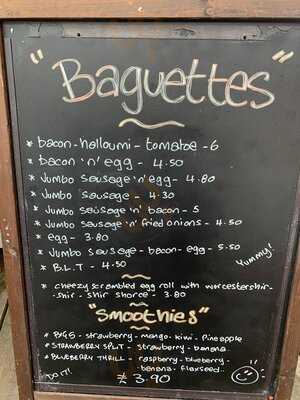 "Baguettes"
* bacon - halloumi - tomatoe - 6
* bacon 'n' egg - 4.50
* Jumbo sausage 'n' egg - 4.80
* Jumbo sausage - 4.30
* Jumbo sausage 'n' bacon - 5
* Jumbo sausage 'n' fried onions - 4.50
* egg - 3.80
* Jumbo sausage - bacon - egg - 5.50
* B.L.T - 4.50
Yummy!
* cheezy scrambled egg roll with worcestershir-
-shir - shir shorce - 3.80
"Smoothies"
* BIG 5 - strawberry - mango - kiwi - Pineapple
* STRAWBERRY SPLIT - strawberry - banana
* BLUEBERRY THRILL - raspberry - blueberry -
banana - flaxseed..
DO IT!
£ 3.90